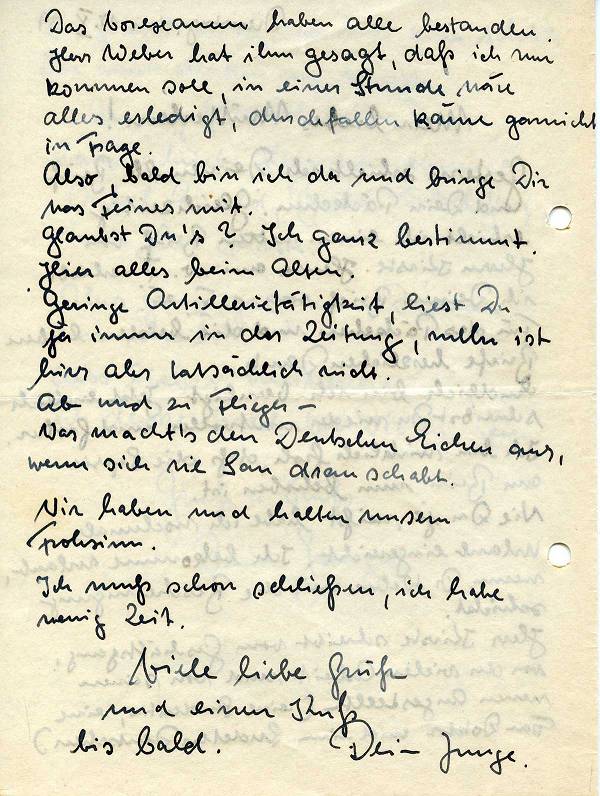 Das Vorexamen haben alle bestanden.
Herr Weber hat ihm gesagt, daß ich nur
kommen solle, in einer Stunde wäre
alles erledigt, durchfallen käme garnicht
in Frage.
Also, bald bin ich da und bringe Dir
was Feines mit.
Glaubst Du's? Ich ganz bestimmt.
Hier alles beim Alten.
Geringe Artillerietätigkeit, liest Du
ja immer in der Zeitung, mehr ist
hier aber tatsächlich nicht.
Ab und zu Flieger –
Was macht's den Deutschen Eichen aus,
wenn sich ne Sau dran schabt.
Wir haben und halten unsern
Frohsinn.
Ich muß schon schließen, ich habe
wenig Zeit.
Viele liebe Grüße
und einen Kuß
bis bald. Dein Junge.